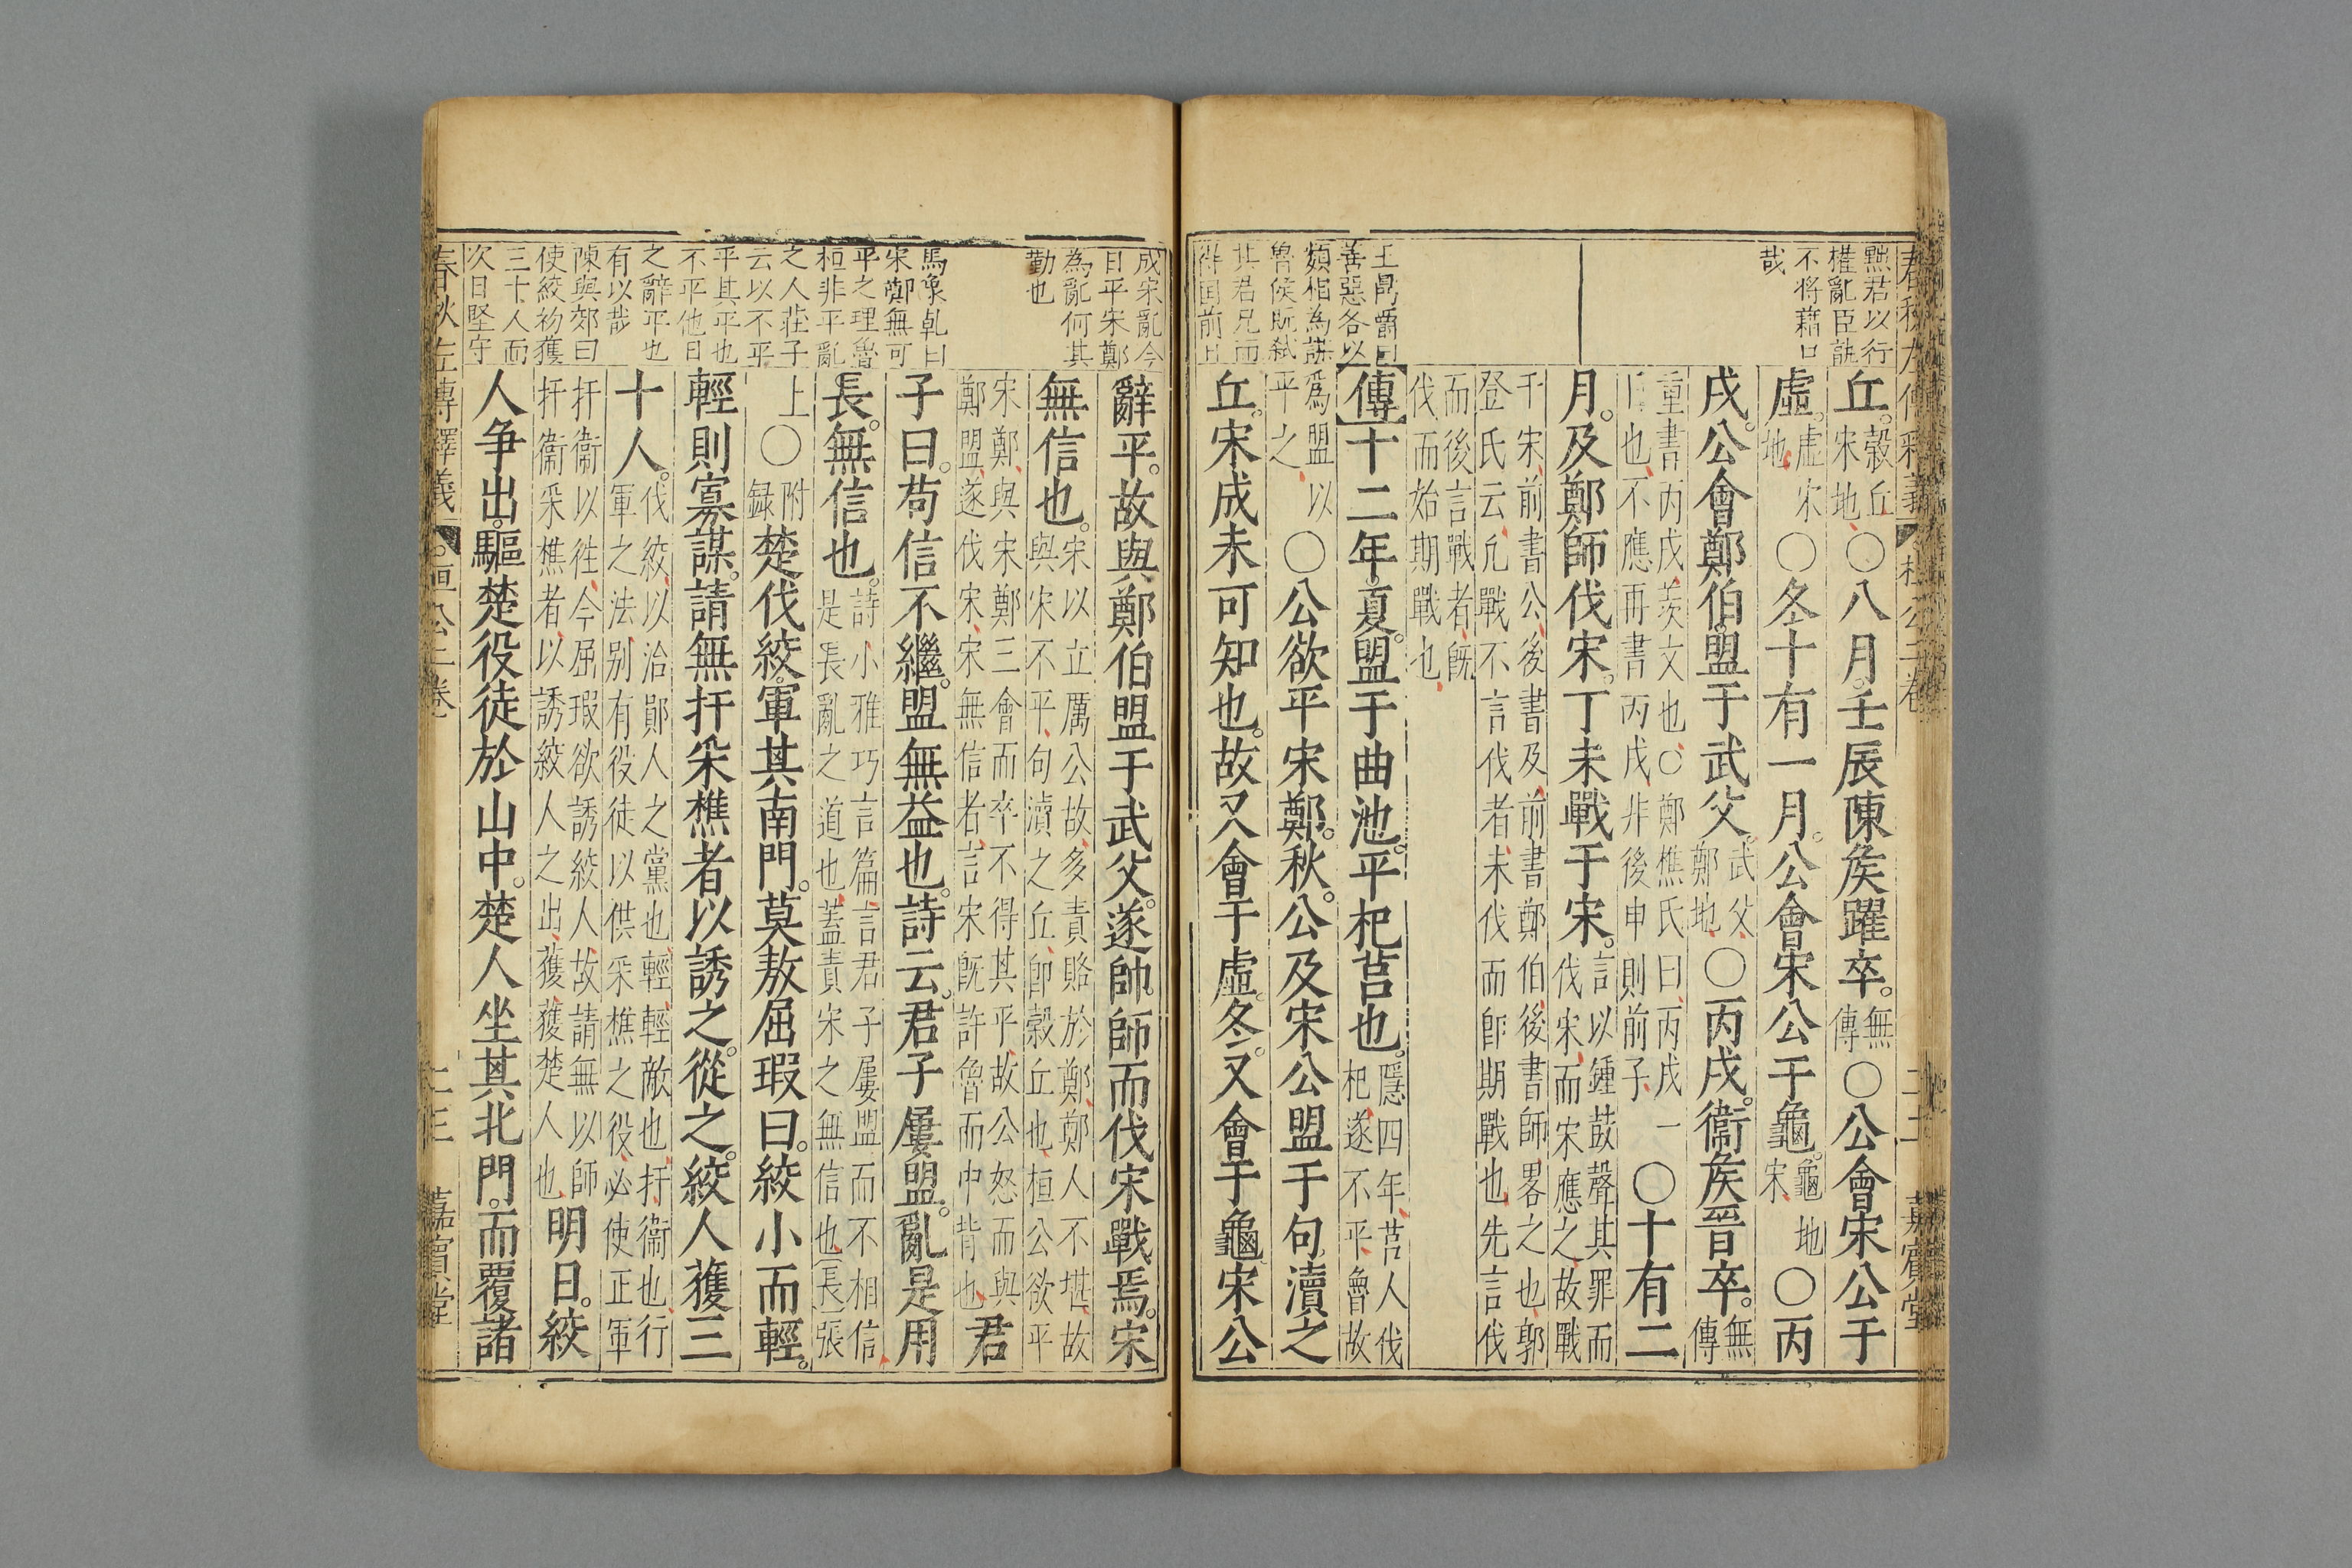 春秋左傳釋義 桓公二卷 二十二 嘉賓堂
黑君以行
權亂臣訊
不將藉口
哉
王鳳爵曰
善惡各以
類相為謀
魯侯旣弑
其君兄而
丘穀丘宋地○八月壬辰陳侯躍卒無傳○公會宋公于
虛虛宋地○冬十有一月公會宋公于龜龜宋地○丙
戌公會鄭伯盟于武父武父鄭地○丙戌衞侯晉卒無傳
重書丙戌羡文也○鄭樵氏曰丙戌一
日也不應再書丙戌非後申則前子○十有二
月及鄭師伐宋丁未戰于宋言以鍾鼓聲其罪而伐宋而宋應之故戰
于宋前書公後書及前書鄭伯後書師畧之也郭
登氏云凡戰不言伐者未伐而卽期戰也先言伐
而後言戰者旣
伐而始期戰也
傳十二年夏盟于曲池平杞莒也隱四年莒人伐杞遂不平魯故
爲盟以平之○公欲平宋鄭秋公及宋公盟于句瀆之
丘宋成未可知也故又會于虛冬又會于龜宋公
成宋亂今
日平宋鄭
為亂何其
勤也
馬象乾曰
宋鄭無可
平之理魯
桓非平亂
之人莊子
云以不平
平其平也
不平他日
之辭平也
有以哉
陳與郊曰
使絞初獲
三十人而
次日堅守
辭平故與鄭伯盟于武父遂帥師而伐宋戰焉宋
無信也宋以立厲公故多責賂於鄭鄭人不堪故與宋不平句瀆之丘卽穀丘也桓公欲平
宋鄭與宋鄭三會而卒不得其平故公怒而與
鄭盟遂伐宋宋無信者言宋旣許魯而中背也君
子曰苟信不繼盟無益也詩云君子屢盟亂是用
長無信也詩小雅巧言篇言君子屢盟而不相信是長亂之道也蓋責宋之無信也長張
上○附録楚伐絞軍其南門莫敖屈瑕曰絞小而輕
輕則寡謀請無扞采樵者以誘之從之絞人獲三
十人伐絞以治鄖人之黨也輕輕敵也扞衞也行軍之法别有役徒以供采樵之役必使正軍
扞衞以徃今屈瑕欲誘絞人故請無以師
扞衞采樵者以誘絞人之出獲獲楚人也明日絞
人争出驅楚役徒於山中楚人坐其北門而覆諸
春秋左傳釋義 桓公二卷 二十三 嘉賓堂